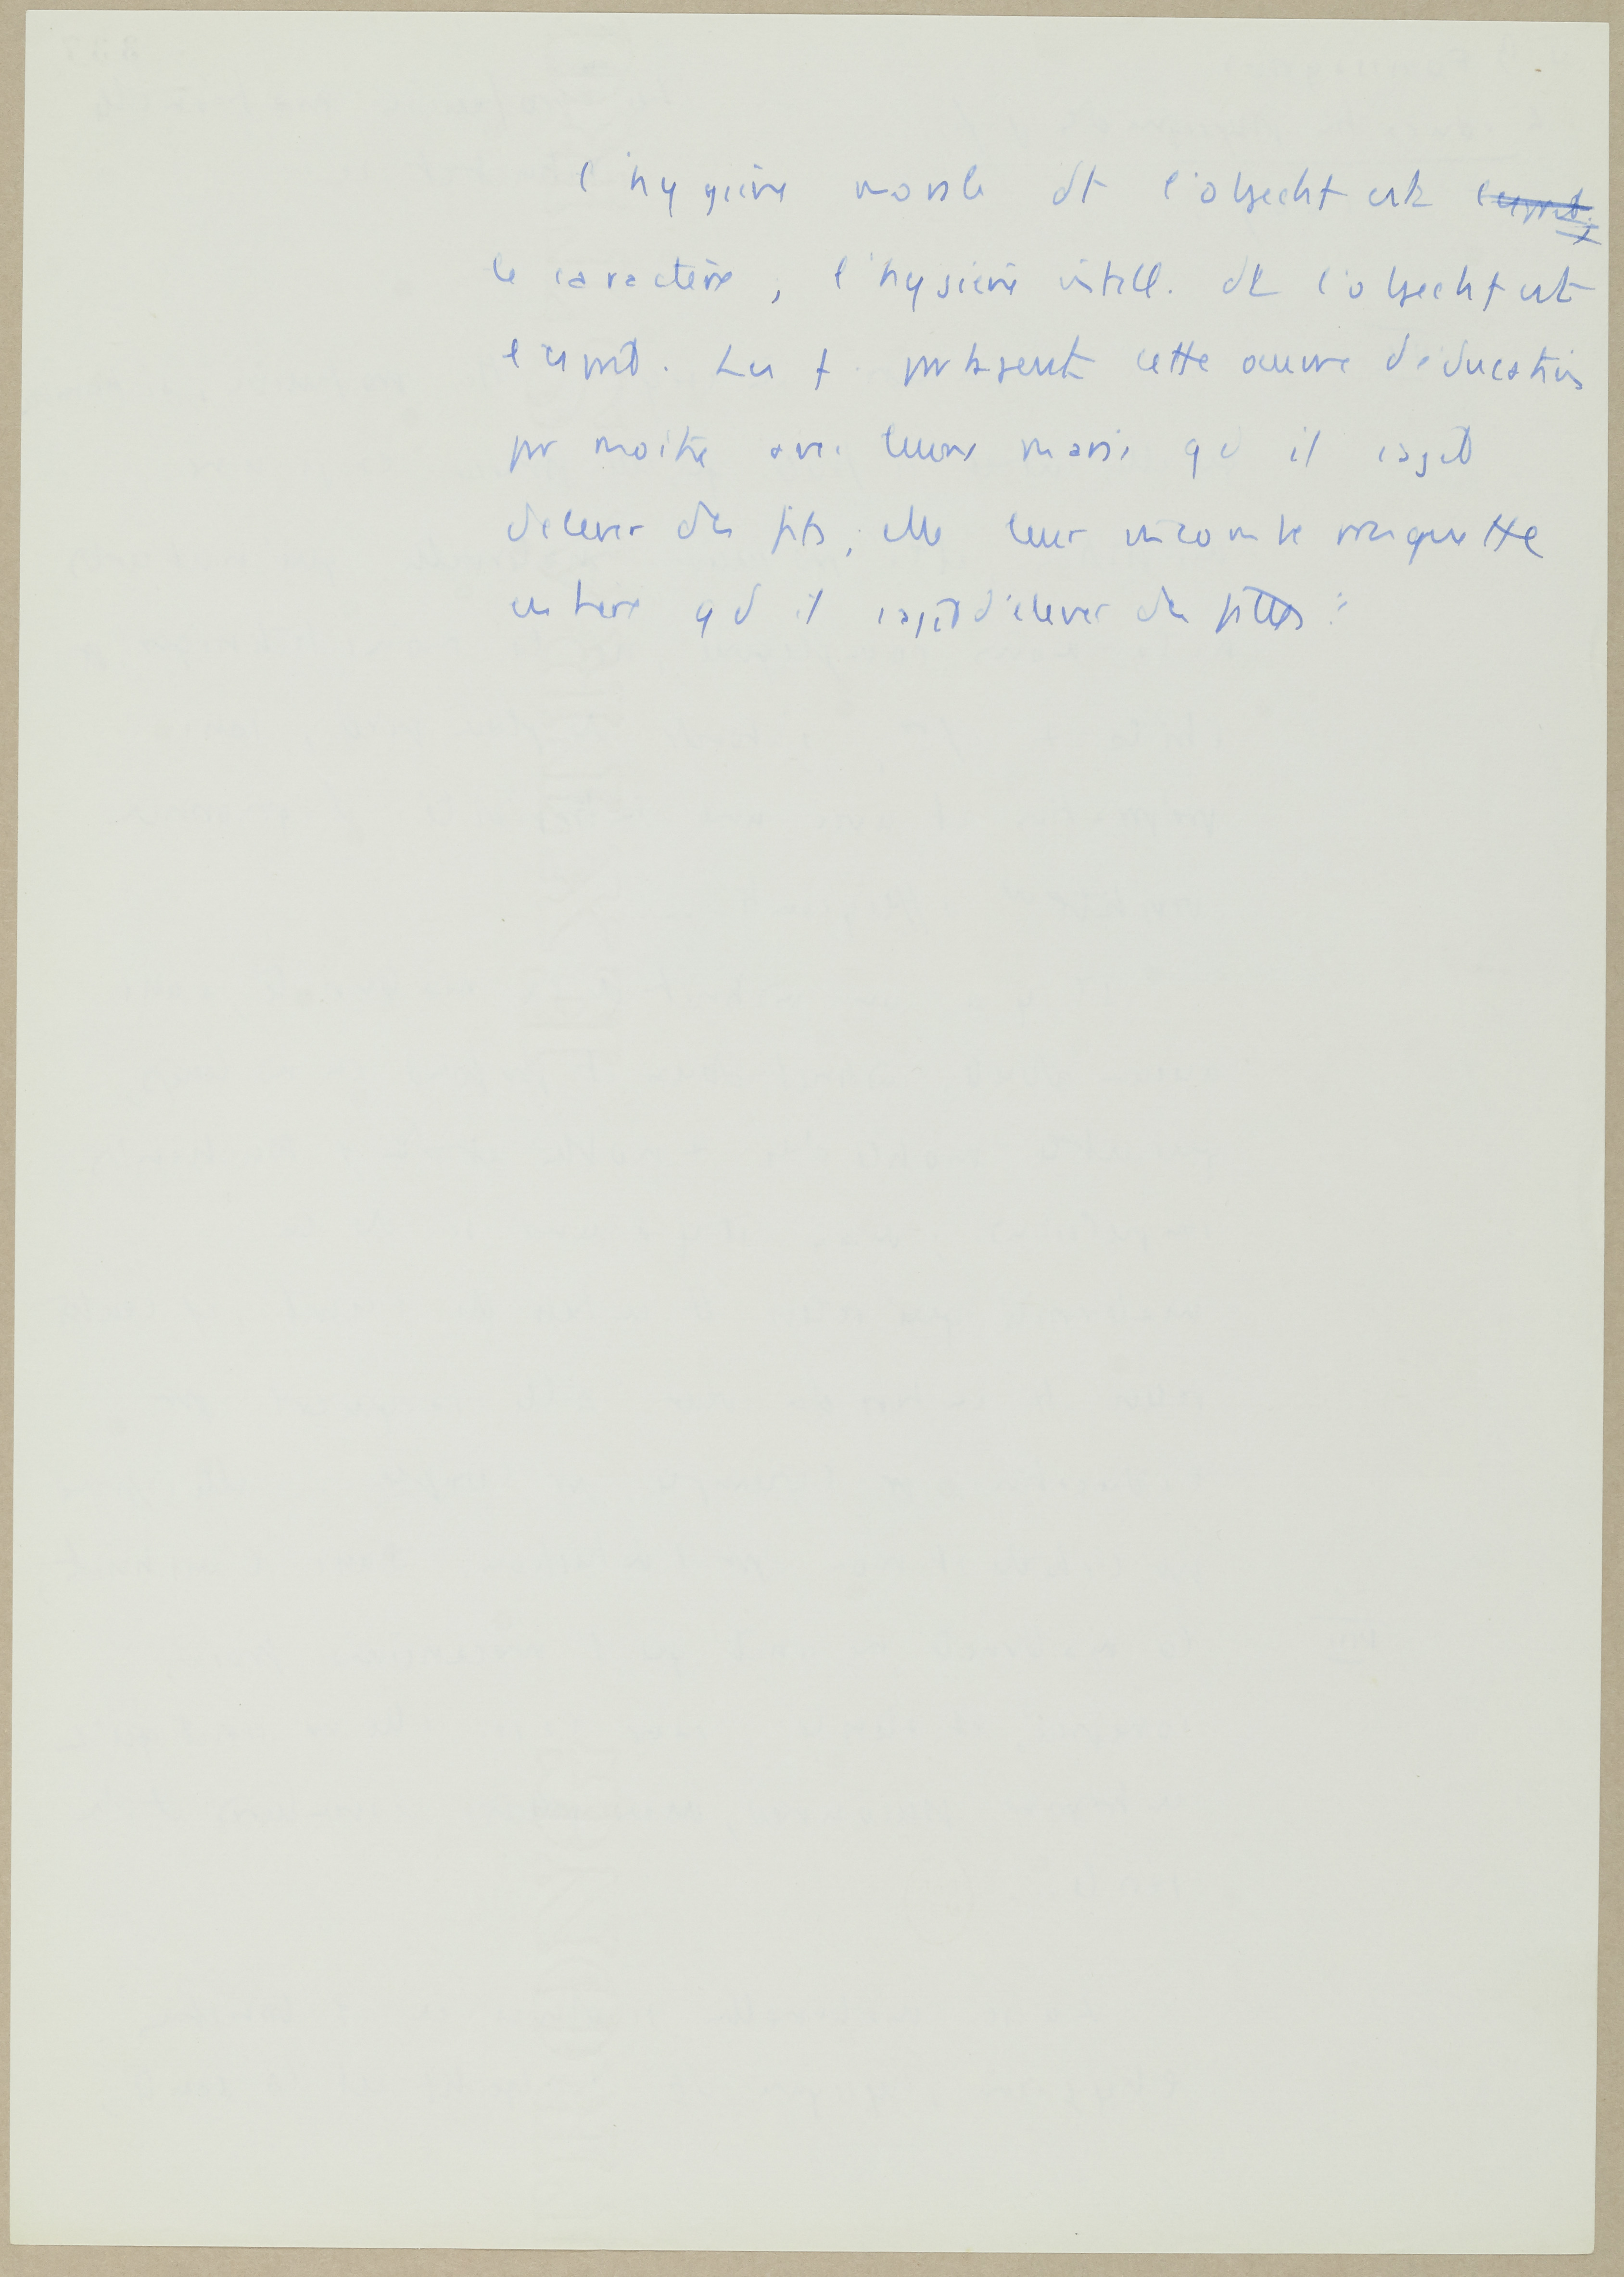 l'hygiène morale dt l'objectif est l'esprit
le caractère, l'hygiène intell. dt l'objectif est
l'esprit. Les f. partagent cette œuvre d'éducation
pr moitié avec leurs maris qd il s'agit
d'élever des fils; elle leur incombe presque tte
entière qd il s'agit d'élever des filles :